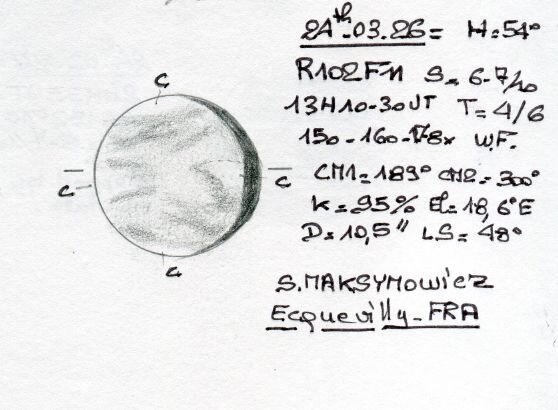 24th.03.26 = H=54°
R102F11 S= 6-7/10
13H10-30UT T=4/6
150-160-178x W.F.
CM1=189° CM2=300°
K=95% El=18,6°E
D=10,5" LS=48°
S.MAKSYMOWICZ
Ecquevilly-FRA
C
C
C
C